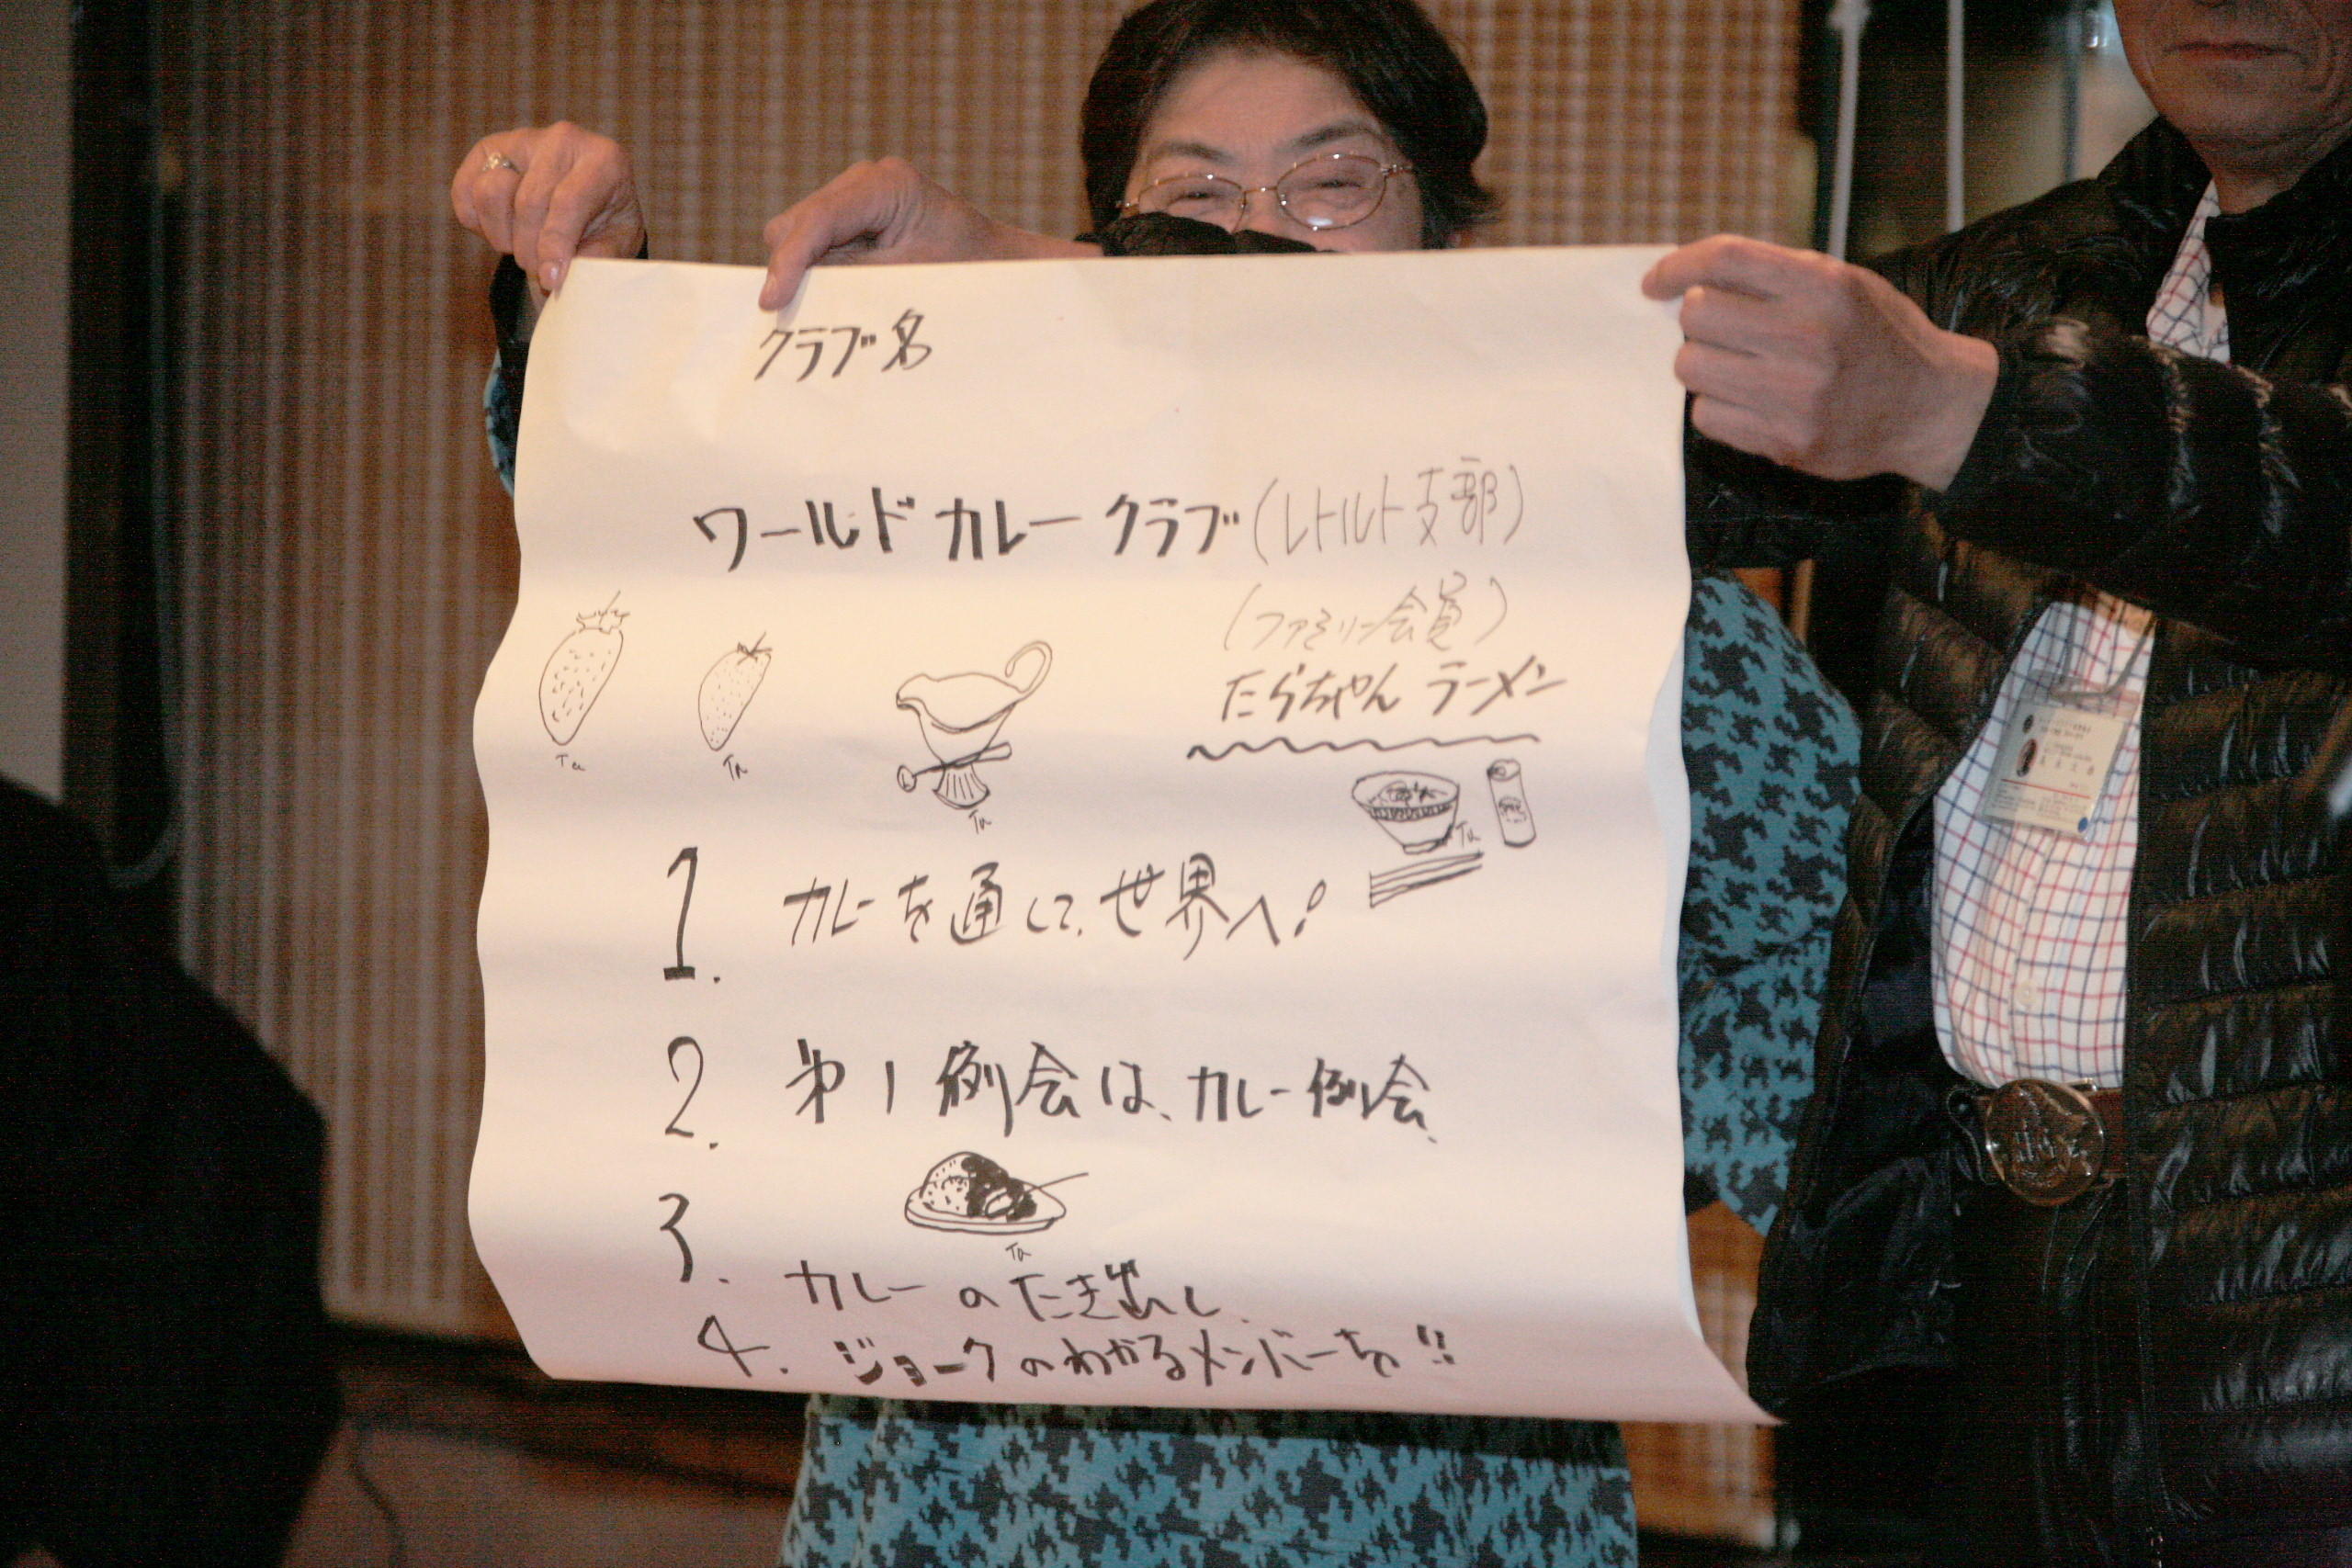 クラブ名
ワールドカレークラブ(レトルト支部)
(ファミリー会員)
たらちゃんラーメン
Ta
Ta
Ta
Ta
1. カレーを通して、世界へ!
2. 第1例会は、カレー例会、
Ta
3. カレーのたき出し、
4. ジョークのわかるメンバーを!!